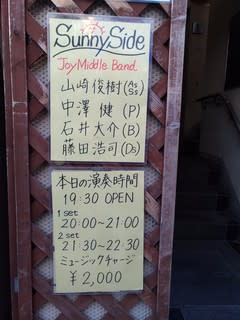 Sunny Side
Joy Middle Band
山崎 俊樹(As Ss)
中澤 健(P)
石井大介(B)
藤田浩司(Ds)
本日の演奏時間
19:30 OPEN
1 set
20:00~21:00
2 set
21:30~22:30
ミュージックチャージ
¥2,000